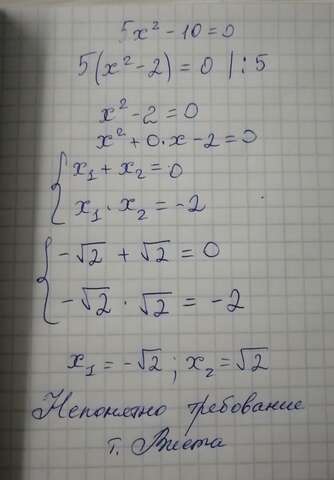 5x² - 10 = 0
5(x² - 2) = 0 | : 5
x² - 2 = 0
x² + 0 · x - 2 = 0
{ x₁ + x₂ = 0
x₁ · x₂ = -2
{ -√2 + √2 = 0
-√2 · √2 = -2
x₁ = -√2 ; x₂ = √2
Непонятно требование
т. Виета